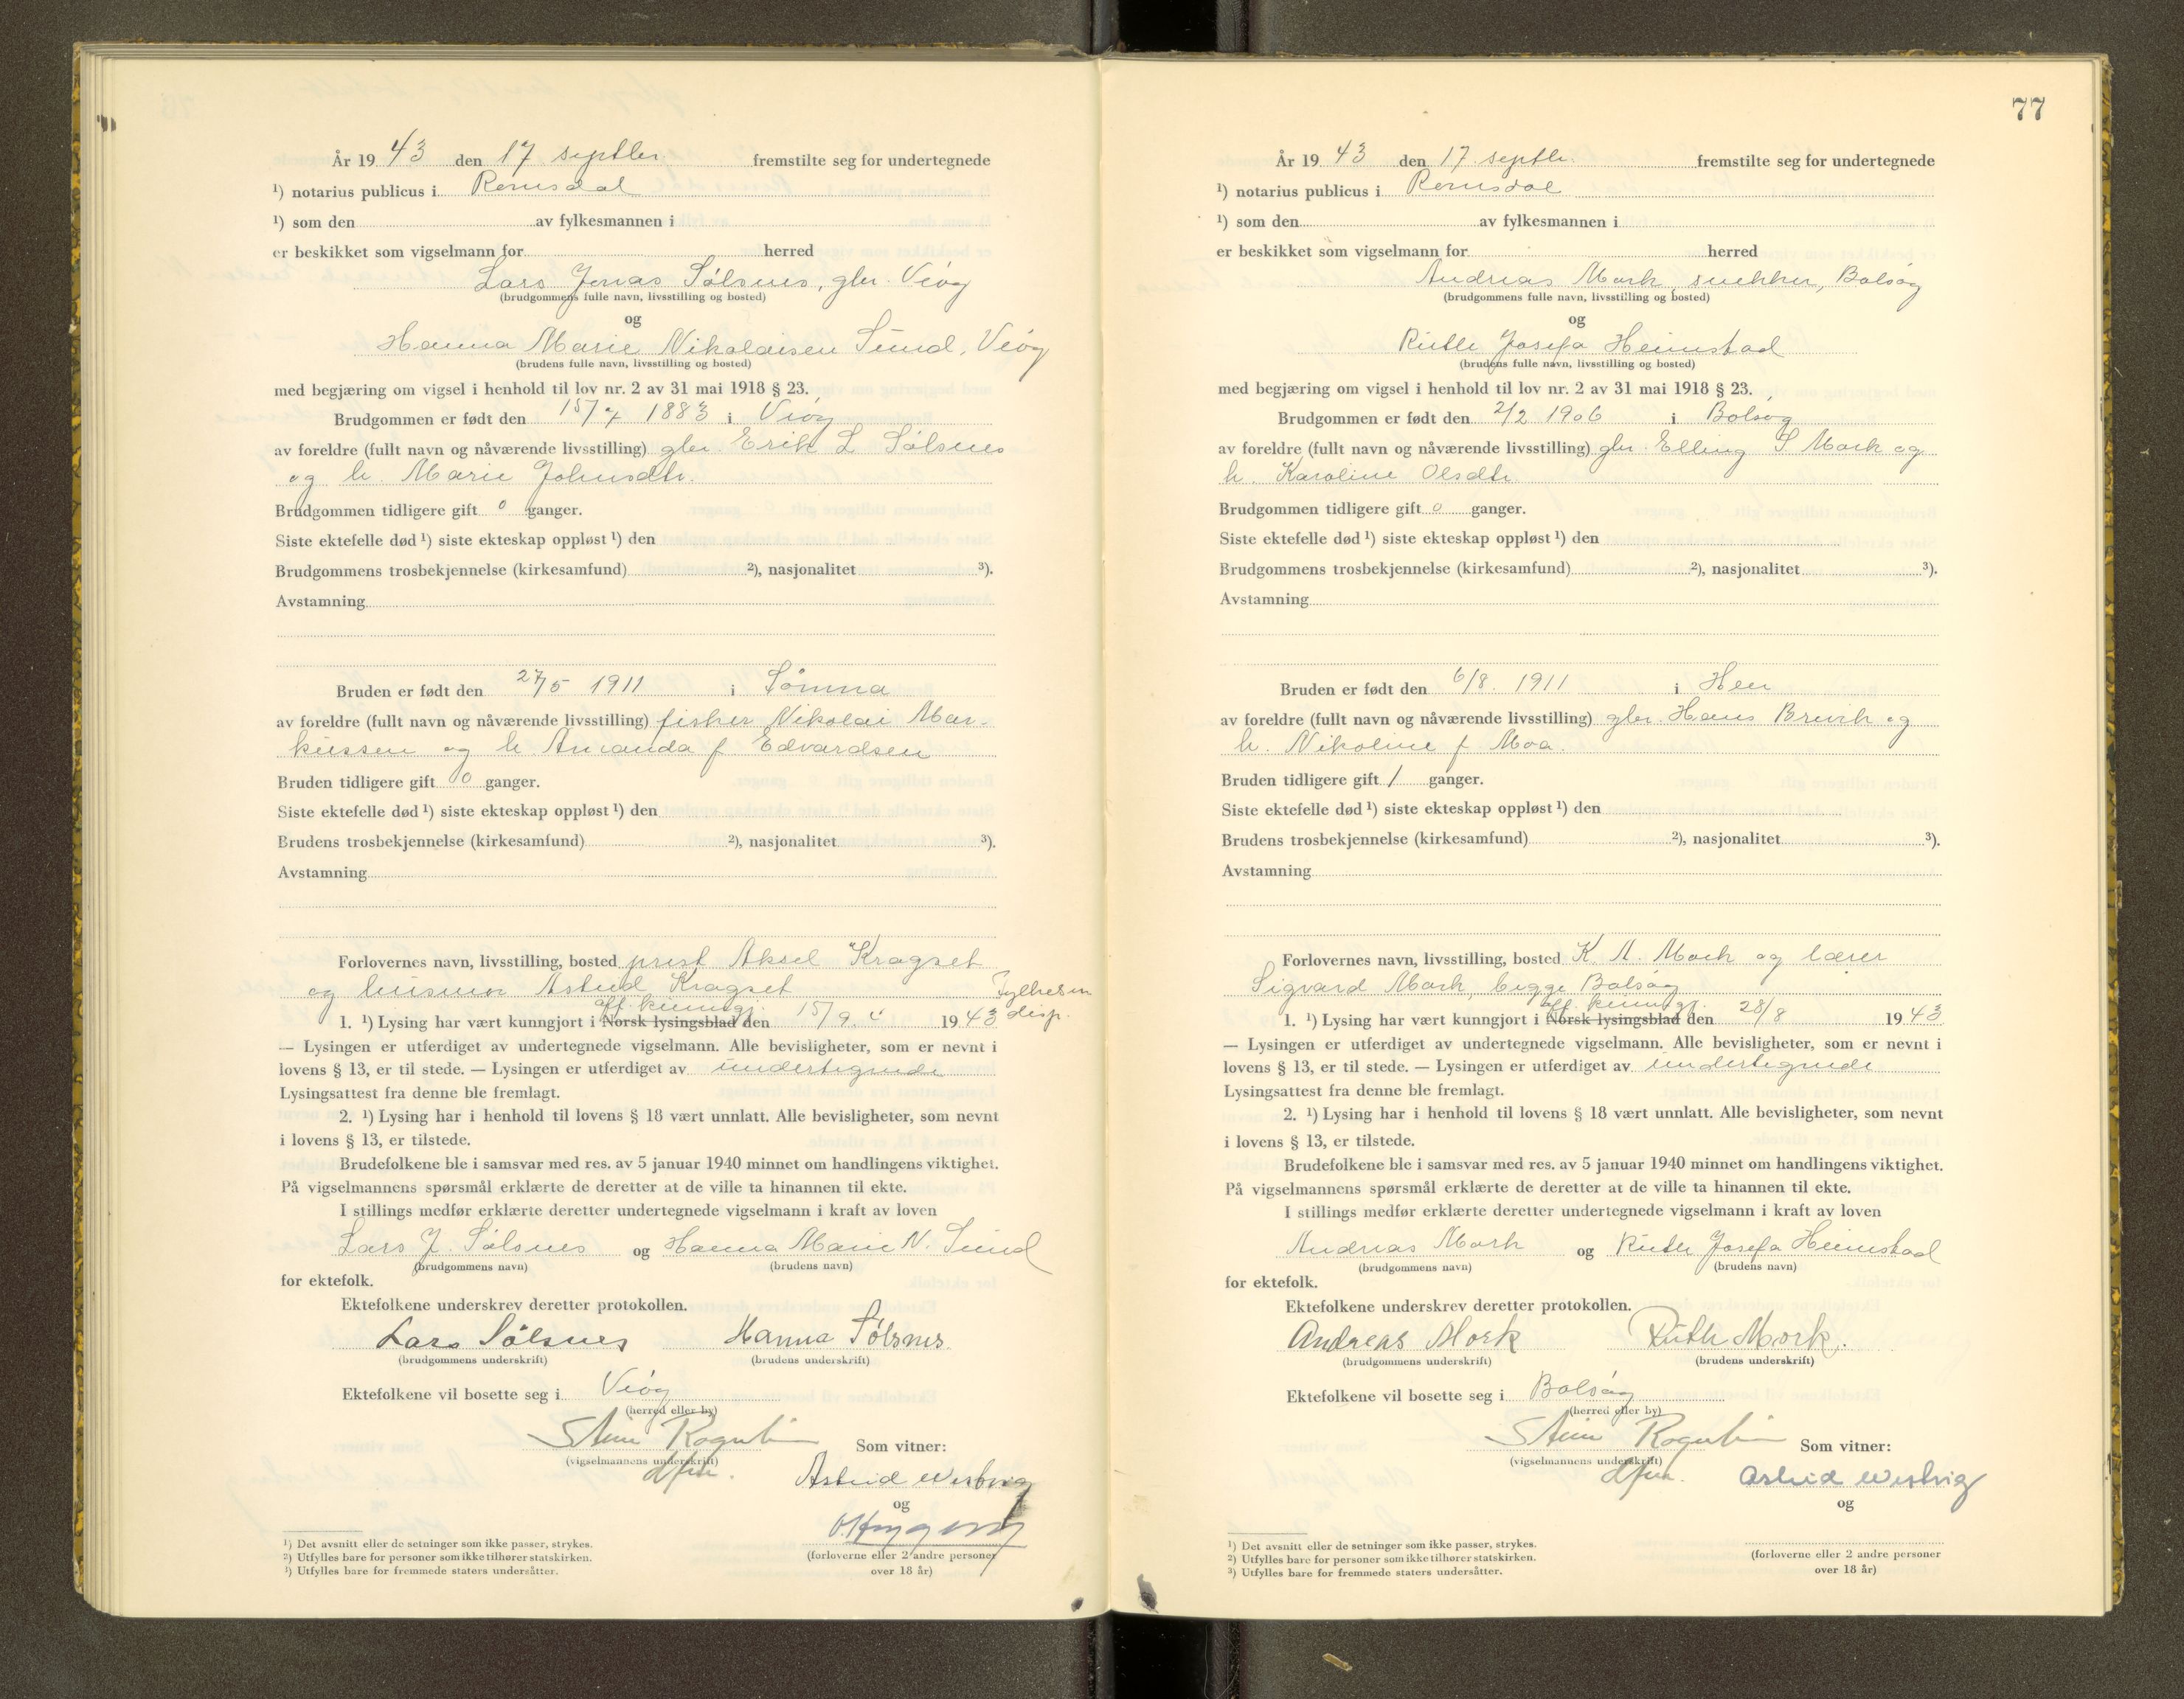 År 19 43 den 17 septbr. fremstilte seg for undertegnede
¹) notarius publicus i Romsdal
¹) som den av fylkesmannen i
er beskikket som vigselmann for herred
Lars Jonas Sølsnes, gbr. Veøy
(brudgommens fulle navn, livsstilling og bosted)
og
Hanna Marie Nikolaisen Sund, Veøy
(brudens fulle navn, livsstilling og bosted)
med begjæring om vigsel i henhold til lov nr. 2 av 31 mai 1918 § 23.
Brudgommen er født den 15/7 1883 i Veøy
av foreldre (fullt navn og nåværende livsstilling) gbr. Erik L Sølsnes
og h. Marie Johnsdtr.
Brudgommen tidligere gift 0 ganger.
Siste ektefelle død ¹) siste ekteskap oppløst ¹) den
Brudgommens trosbekjennelse (kirkesamfund) ²), nasjonalitet ³).
Avstamning
Bruden er født den 27/5 1911 i Sømna
av foreldre (fullt navn og nåværende livsstilling) fisker Nikolai Mar-
kussen og h Amanda f Edvardsen
Bruden tidligere gift 0 ganger.
Siste ektefelle død ¹) siste ekteskap oppløst ¹) den
Brudens trosbekjennelse (kirkesamfund) ²), nasjonalitet ³).
Avstamning
Forlovernes navn, livsstilling, bosted prest Aksel Kragset
og husmor Astrid Kragset Fylkesm
off. kunngj. disp.
1. ¹) Lysing har vært kunngjort i Norsk lysingsblad den 15/9 19 43
— Lysingen er utferdiget av undertegnede vigselmann. Alle bevisligheter, som er nevnt i
lovens § 13, er til stede. — Lysingen er utferdiget av undertegnede
Lysingsattest fra denne ble fremlagt.
2. ¹) Lysing har i henhold til lovens § 18 vært unnlatt. Alle bevisligheter, som nevnt
i lovens § 13, er tilstede.
Brudefolkene ble i samsvar med res. av 5 januar 1940 minnet om handlingens viktighet.
På vigselmannens spørsmål erklærte de deretter at de ville ta hinannen til ekte.
I stillings medfør erklærte deretter undertegnede vigselmann i kraft av loven
Lars J. Sølsnes og Hanna Marie N. Sund
(brudgommens navn) (brudens navn)
for ektefolk.
Ektefolkene underskrev deretter protokollen.
Lars Sølsnes Hanna Sølsnes
(brudgommens underskrift) (brudens underskrift)
Ektefolkene vil bosette seg i Veøy
(herred eller by)
Som vitner:
(vigselmannens underskrift)
dfm.
Astrid Westvig
og
(forloverne eller 2 andre personer
over 18 år)
¹) Det avsnitt eller de setninger som ikke passer, strykes.
²) Utfylles bare for personer som ikke tilhører statskirken.
³) Utfylles bare for fremmede staters undersåtter.
77
År 19 43 den 17 septbr. fremstilte seg for undertegnede
¹) notarius publicus i Romsdal
¹) som den av fylkesmannen i
er beskikket som vigselmann for herred
Andreas Mork, snekker, Bolsøy
(brudgommens fulle navn, livsstilling og bosted)
og
Ruth Josefa Heimstad
(brudens fulle navn, livsstilling og bosted)
med begjæring om vigsel i henhold til lov nr. 2 av 31 mai 1918 § 23.
Brudgommen er født den 2/2 1906 i Bolsøy
av foreldre (fullt navn og nåværende livsstilling) gbr. Elling S Mork og
h. Karoline Olsdtr
Brudgommen tidligere gift 0 ganger.
Siste ektefelle død ¹) siste ekteskap oppløst ¹) den
Brudgommens trosbekjennelse (kirkesamfund) ²), nasjonalitet ³).
Avstamning
Bruden er født den 6/8. 1911 i Hen
av foreldre (fullt navn og nåværende livsstilling) gbr. Hans Brevik og
h. Nikoline f Moa.
Bruden tidligere gift 1 ganger.
Siste ektefelle død ¹) siste ekteskap oppløst ¹) den
Brudens trosbekjennelse (kirkesamfund) ²), nasjonalitet ³).
Avstamning
Forlovernes navn, livsstilling, bosted K. A. Mork og lærer
Sigvard Mork, begge Bolsøy
off. kunngj.
1. ¹) Lysing har vært kunngjort i Norsk lysingsblad den 28/8 19 43
— Lysingen er utferdiget av undertegnede vigselmann. Alle bevisligheter, som er nevnt i
lovens § 13, er til stede. — Lysingen er utferdiget av undertegnede
Lysingsattest fra denne ble fremlagt.
2. ¹) Lysing har i henhold til lovens § 18 vært unnlatt. Alle bevisligheter, som nevnt
i lovens § 13, er tilstede.
Brudefolkene ble i samsvar med res. av 5 januar 1940 minnet om handlingens viktighet.
På vigselmannens spørsmål erklærte de deretter at de ville ta hinannen til ekte.
I stillings medfør erklærte deretter undertegnede vigselmann i kraft av loven
Andreas Mork og Ruth Josefa Heimstad
(brudgommens navn) (brudens navn)
for ektefolk.
Ektefolkene underskrev deretter protokollen.
Andreas Mork Ruth Mork.
(brudgommens underskrift) (brudens underskrift)
Ektefolkene vil bosette seg i Bolsøy
(herred eller by)
Som vitner:
(vigselmannens underskrift)
dfm.
Astrid Westvig
og
(forloverne eller 2 andre personer
over 18 år)
¹) Det avsnitt eller de setninger som ikke passer, strykes.
²) Utfylles bare for personer som ikke tilhører statskirken.
³) Utfylles bare for fremmede staters undersåtter.